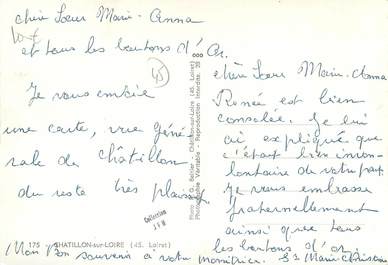 chère Sœur Marie-Anna
et tous les boutons d'Or.
Je vous envoie
une carte, vue géné
rale de châtillon
du reste très plaisant
chère Sœur Marie-Anna
Renée est bien
consolée. Je lui
ai expliqué que
c'était bien invo-
lontaire de votre part
Je vous embrasse
fraternellement
ainsi que tous
les boutons d'or.
Mon Bon souvenir à votre monitrice. Sr Marie Christine
45
175 - CHATILLON-sur-LOIRE (45. Loiret)
Châtillon-sur-Loire (45. Loiret)
Photographie Véritable - Reproduction Interdite.
Collection